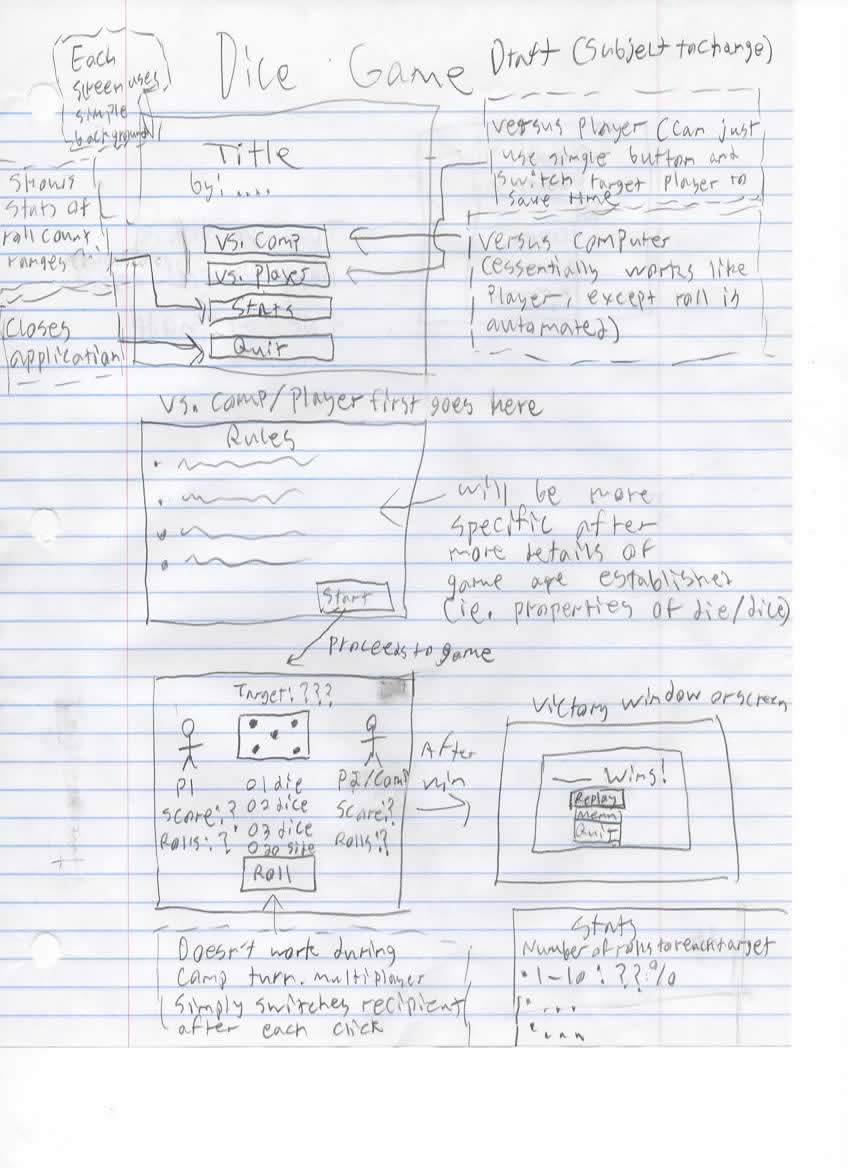 Dice Game
Draft (Subject to change)
Each
screen uses
simple
background
Title
by: ....
vs. Comp
vs. player
Stats
Quit
Shows
Stats of
roll count
ranges
Closes
application
versus player (Can just
use simple button and
switch target player to
save time
versus computer
(essentially works like
player, except roll is
automated)
vs. comp/player first goes here
Rules
Start
will be more
specific after
more details of
game are established
(ie. properties of die/dice)
Proceeds to game
Target: ???
P1
Score:?
Rolls:?
O 1 die
O 2 dice
O 3 dice
O 20 side
P2/Comp
Score:?
Rolls:?
Roll
After
win
Victory window or screen
___ Wins!
Replay
Menu
Quit
Doesn't work during
Comp turn. multiplayer
Simply switches recipient
after each click
Stats
Number of rolls to reach target
• 1-10: ??%
• ...
• ...